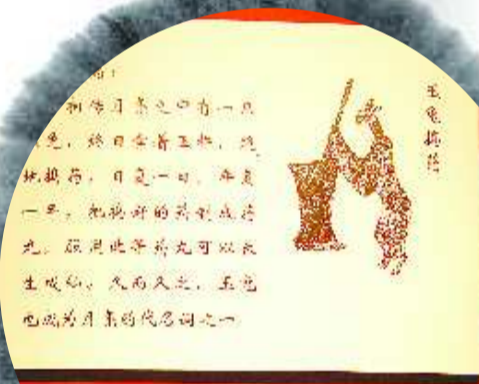 相传月亮之中有一只
兔，终日拿着玉杵，跪
地捣药，日复一日，年复
一年，把捣好的药制成药
丸，服用此等药丸可以长
生成仙。久而久之，玉兔
也成为月亮的代名词之一
玉兔捣药